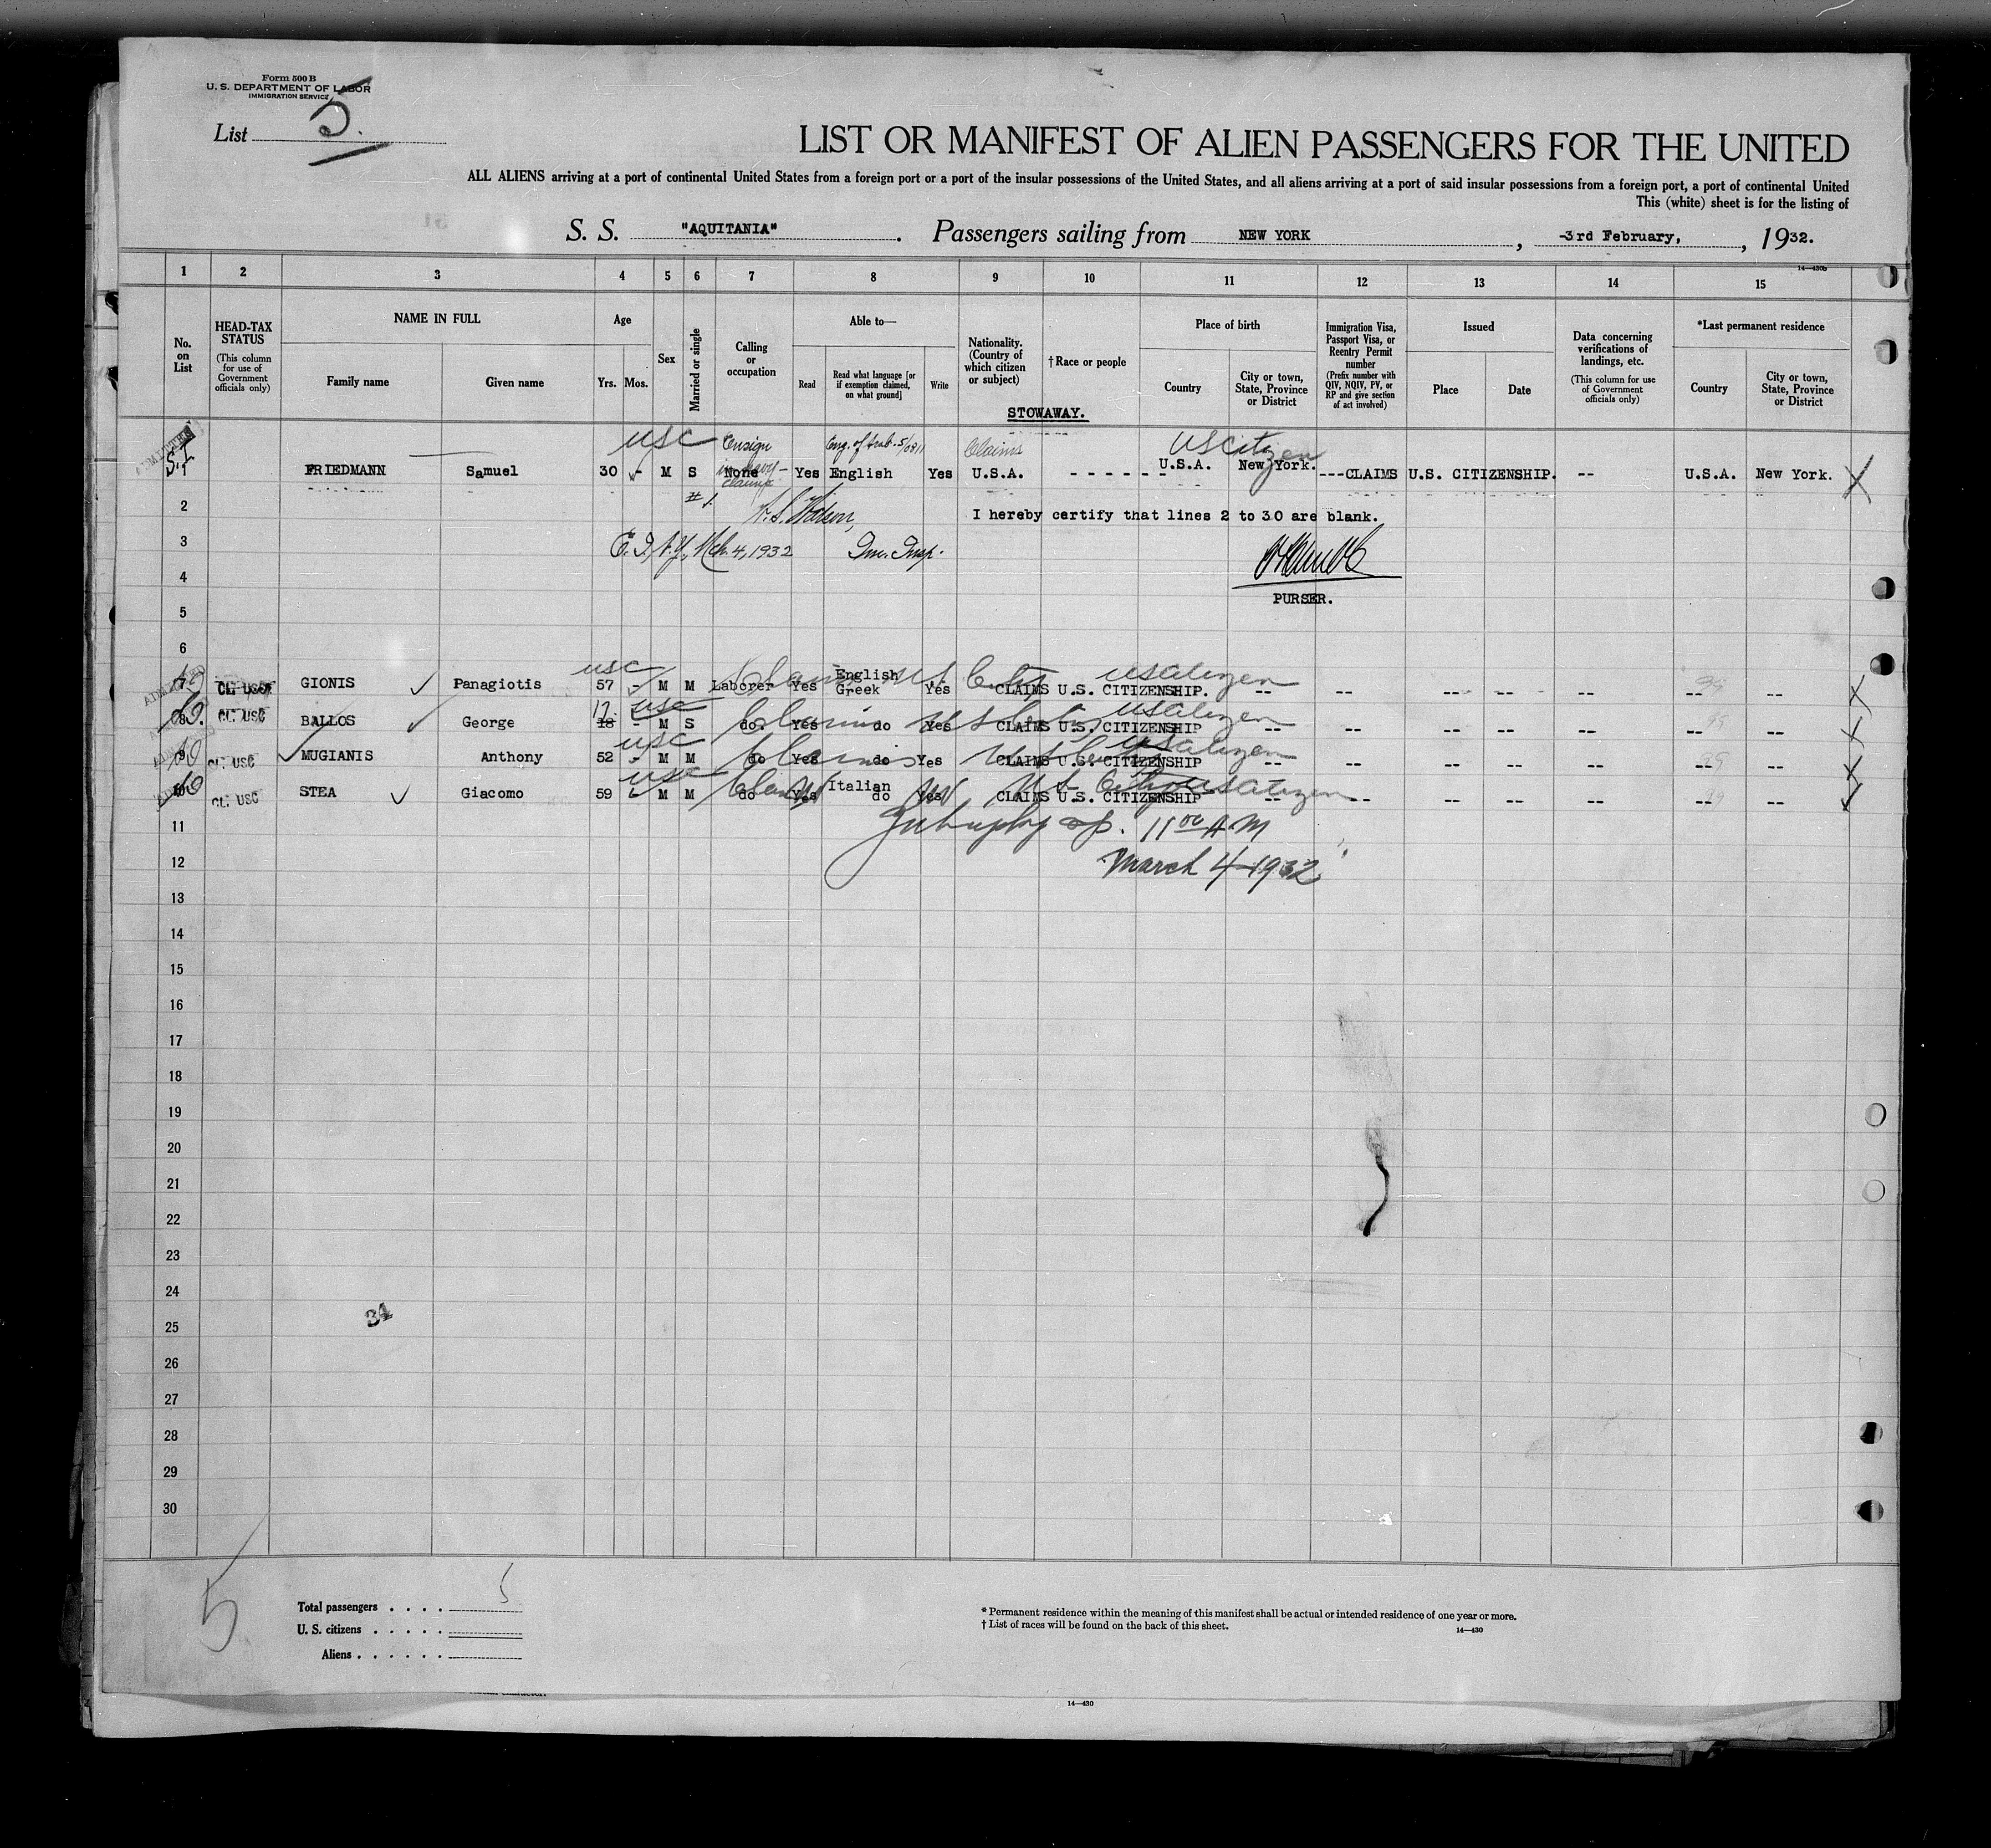 Form 500 B
U. S. DEPARTMENT OF LABOR
IMMIGRATION SERVICE
List 5.
LIST OR MANIFEST OF ALIEN PASSENGERS FOR THE UNITED
ALL ALIENS arriving at a port of continental United States from a foreign port or a port of the insular possessions of the United States, and all aliens arriving at a port of said insular possessions from a foreign port, a port of continental United
This (white) sheet is for the listing of
S. S. "AQUITANIA". Passengers sailing from NEW YORK, -3rd February,, 1932.
14—430b
1 2 3 4 5 6 7 8 9 10 11 12 13 14 15
No. on List
HEAD-TAX STATUS (This column for use of Government officials only)
NAME IN FULL
Family name Given name
Age
Yrs. Mos.
Sex
Married or single
Calling or occupation
Able to—
Read Read what language [or if exemption claimed, on what ground] Write
Nationality. (Country of which citizen or subject)
†Race or people
Place of birth
Country City or town, State, Province or District
Immigration Visa, Passport Visa, or Reentry Permit number (Prefix number with QIV, NQIV, PV, or RP and give section of act involved)
Issued
Place Date
Data concerning verifications of landings, etc. (This column for use of Government officials only)
*Last permanent residence
Country City or town, State, Province or District
STOWAWAY.
ADMITTED
S.I. usc Ensign in navy - claims Claims US citizen
1 FRIEDMANN Samuel 30 - M S None Yes English Yes U.S.A. - - - - - - U.S.A. New York. ---CLAIMS U.S. CITIZENSHIP. -- U.S.A. New York. X
# 1.
2 I hereby certify that lines 2 to 30 are blank.
3 E.I., N.Y., Mch. 4, 1932 Imm. Insp.
4
PURSER.
5
6
usc Claims US Citz US Citizen
CL. USC GIONIS ✓ Panagiotis 57 - M M Laborer Yes English Greek Yes CLAIMS U.S. CITIZENSHIP. -- -- -- -- -- -- -- X
17. usc Claims US Citz US Citizen
8 CL. USC BALLOS ✓ George 18 - M S do. Yes do Yes CLAIMS U.S. CITIZENSHIP -- -- -- -- -- -- -- X
usc Claims US Citizen
9 CL. USC ✓ MUGIANIS Anthony 52 - M M do Yes do Yes CLAIMS U.S. CITIZENSHIP -- -- -- -- -- -- -- X
usc Claims US Citz US Citizen
10 CL. USC STEA ✓ Giacomo 59 - M M do Yes Italian do Yes CLAIMS U.S. CITIZENSHIP -- -- -- -- -- -- --
11 11 00 AM
12 March 4 - 1932
13
14
15
16
17
18
19
20
21
22
23
24
34
25
26
27
28
29
30
5
Total passengers . . . . 5
U. S. citizens . . . . .
Aliens . . . . . .
* Permanent residence within the meaning of this manifest shall be actual or intended residence of one year or more.
† List of races will be found on the back of this sheet.
14—430
14—430